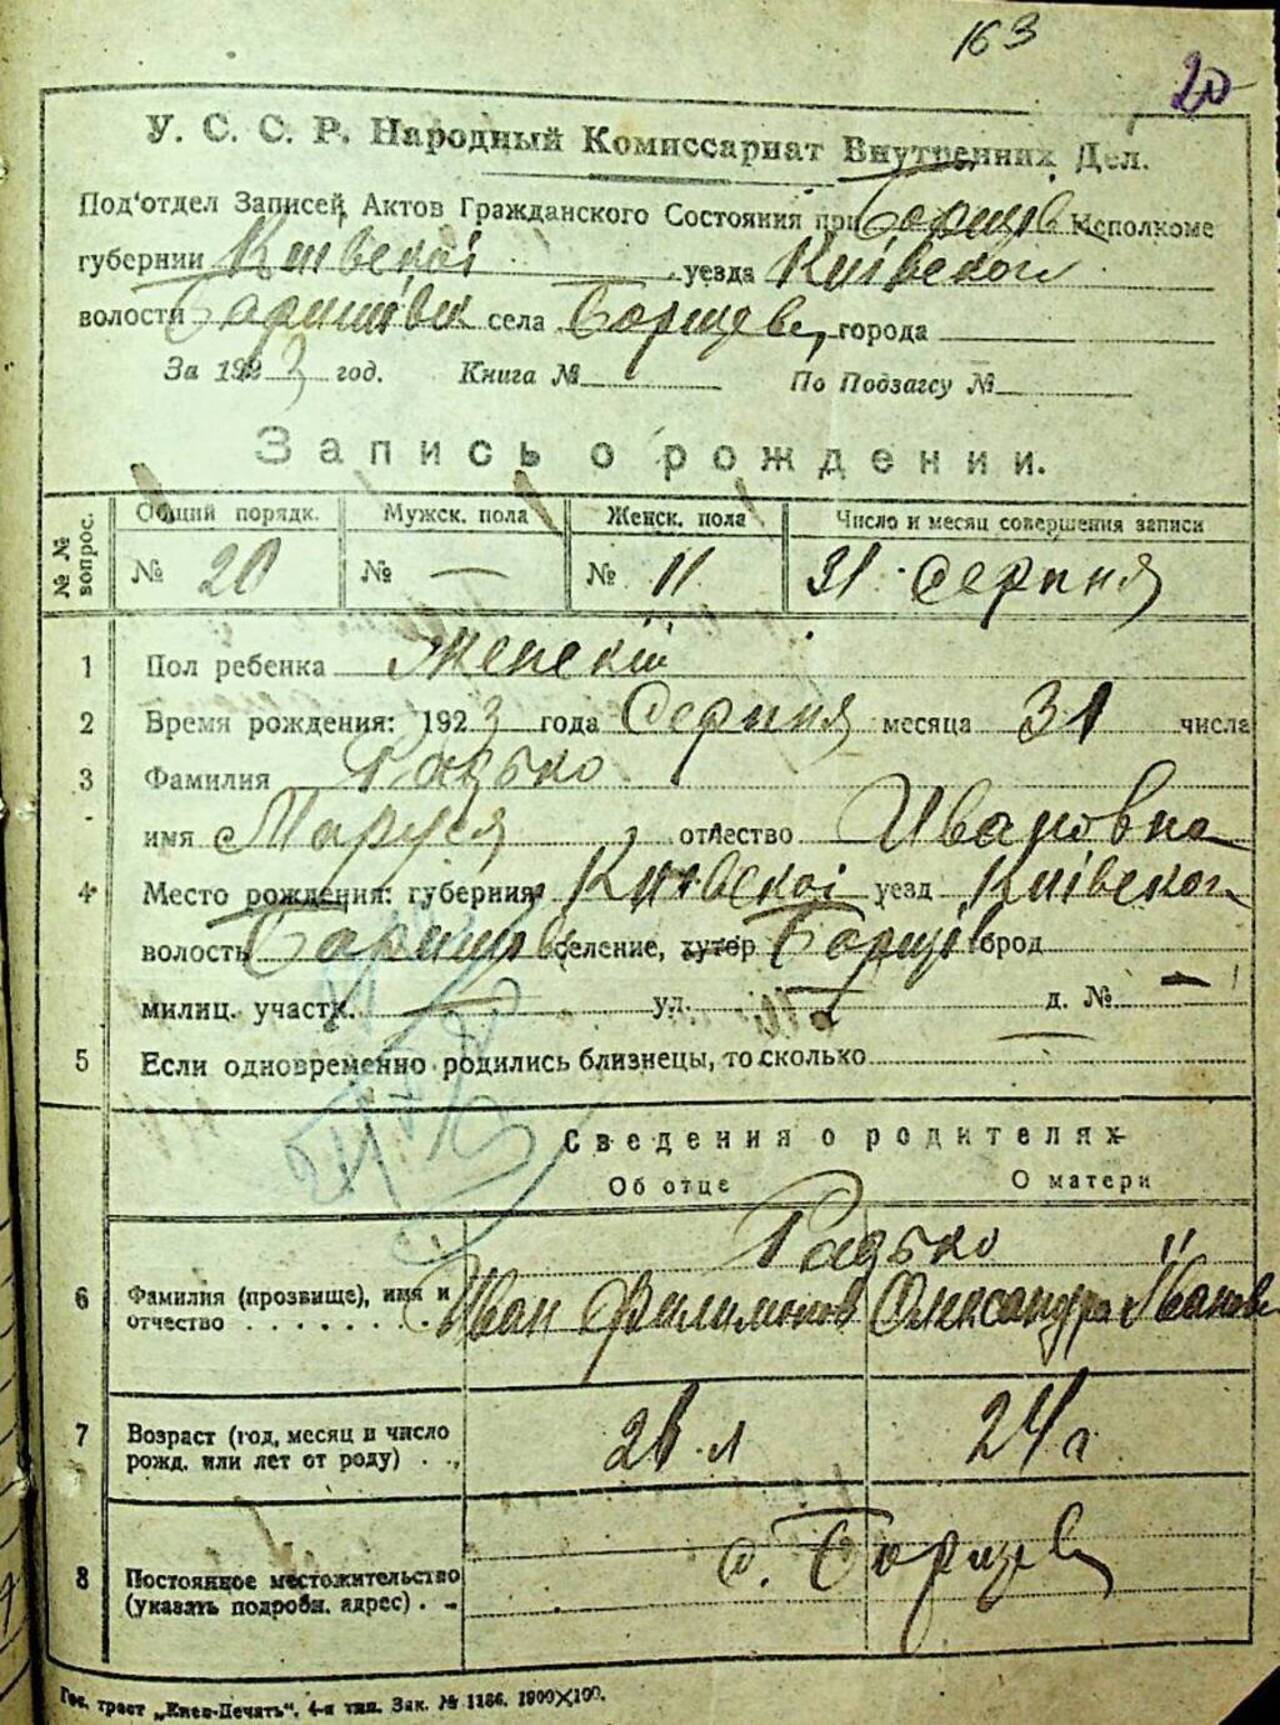 163
20
У. С. С. Р. Народный Комиссариат Внутренних Дел.
Под'отдел Записей Актов Гражданского Состояния при Борщів Исполкоме
губернии Київскої уезда Київскої
волости Баришівск села Борщев, города
За 1923 год. Книга № По Подзагсу №
Запись о рождении.
№ № вопрос. Общий порядк. Мужск. пола Женск. пола Число и месяц совершения записи
№ 20 № — № 11 31 Серпня
1 Пол ребенка Женскій
2 Время рождения: 1923 года Серпня месяца 31 числа
3 Фамилия Радько
имя Маруся отчество Ивановна
4 Место рождения: губерния Київскої уезд Київскої
волость Баришів селение, хутор Борщів брод
милиц. участк. — ул. — д. № —
5 Если одновременно родились близнецы, то сколько —
Сведения о родителях
Об отце О матери
Радько
6 Фамилия (прозвище), имя и Иван Филимонов Олександра Іванов
отчество . . . . . . . .
7 Возраст (год, месяц и число 26 л 24 г
рожд. или лет от роду) . .
8 Постоянное местожительство с. Борщев
(указать подробн. адрес) . -
Гос. трест „Киев-Печать“. 4-я тип. Зак. № 1186. 1900×100.